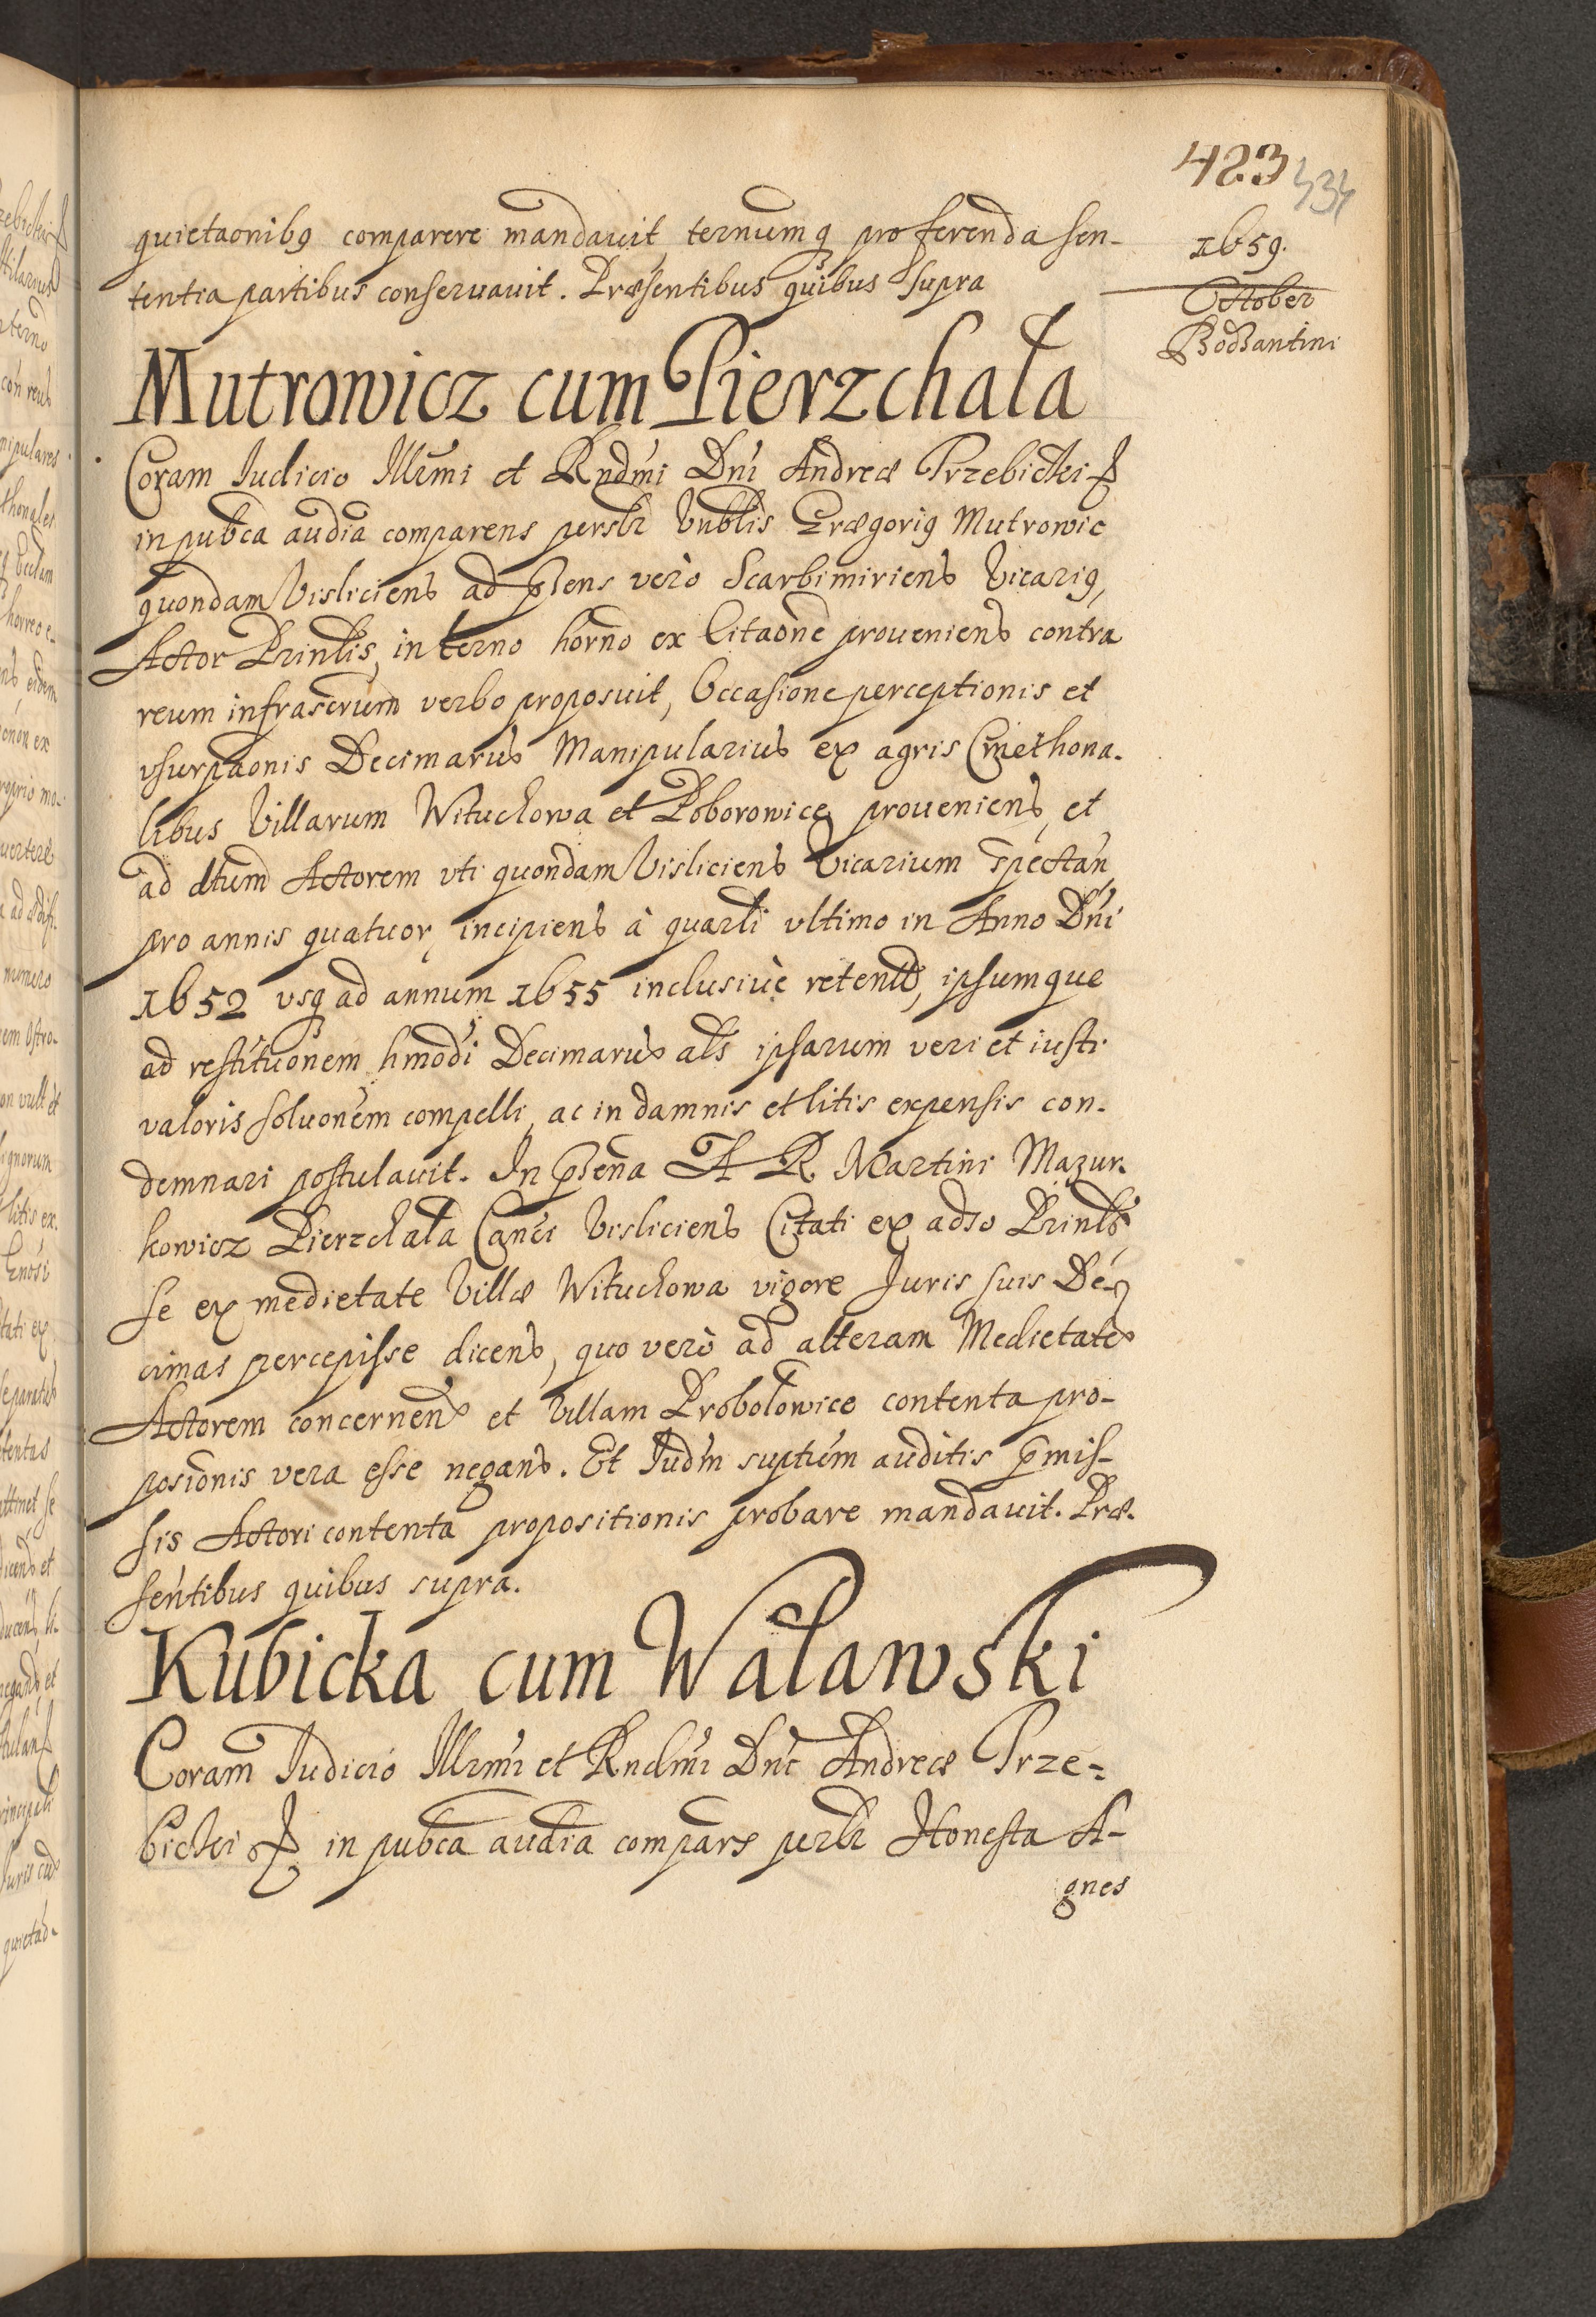 423
434
1659.
October
Bodzantini
quietaonibq comparere mandauit ternumq proferenda sen-
tentia partibus conseruauit. Præsentibus quibus supra
Mutrowicz cum Pierzchała
Coram Iudicio Illrmi et Rndmi Dni Andreæ Trzebicki
in pubca audia comparens persłr Vnblis Græegoriq Mutrowic
quondam Visliciens ad psens verò Scarbimiriens Vicariq,
Actor Prinlis, in terno horno ex Citaone proueniens contra
reum infrascrum verbo proposuit, Occasione perceptionis et
vsurpaonis Decimarus Manipularius ex agris Cmethona-
libus Villarum Wituchowa et Poborowice proueniens, et
ad dtum Actorem vti quondam Visliciens Vicarium spectan,
pro annis quatuor, incipiens à quarli vltimo in Anno Dni
1652 vsq ad annum 1655 inclusiuè retent, ipsumque
ad restituonem hmodi Decimarus als ipsarum veri et iusti
valoris soluonem compelli, ac in damnis et litis expensis con-
demnari postulauit. In psena A R Martini Mazur-
kowicz Pierzchała Canci Visliciens Citati ex adso Prinlis
se ex medietate Villæ Wituchowa vigore Juris suis De-
cimas percepisse dicens, quo verò ad alteram Medietate
Actorem concernens et Villam Probołowice contenta pro-
posionis vera esse negans. Et Iudm suptum auditis pmis-
sis Actori contenta propositionis probare mandauit. Præ-
sentibus quibus supra.
Kubicka cum Waławski
Coram Iudicio Illrmi et Rndmi Dni Andreæ Trze-
bicki in pubca audia compars perlr Honesta A-
gnes